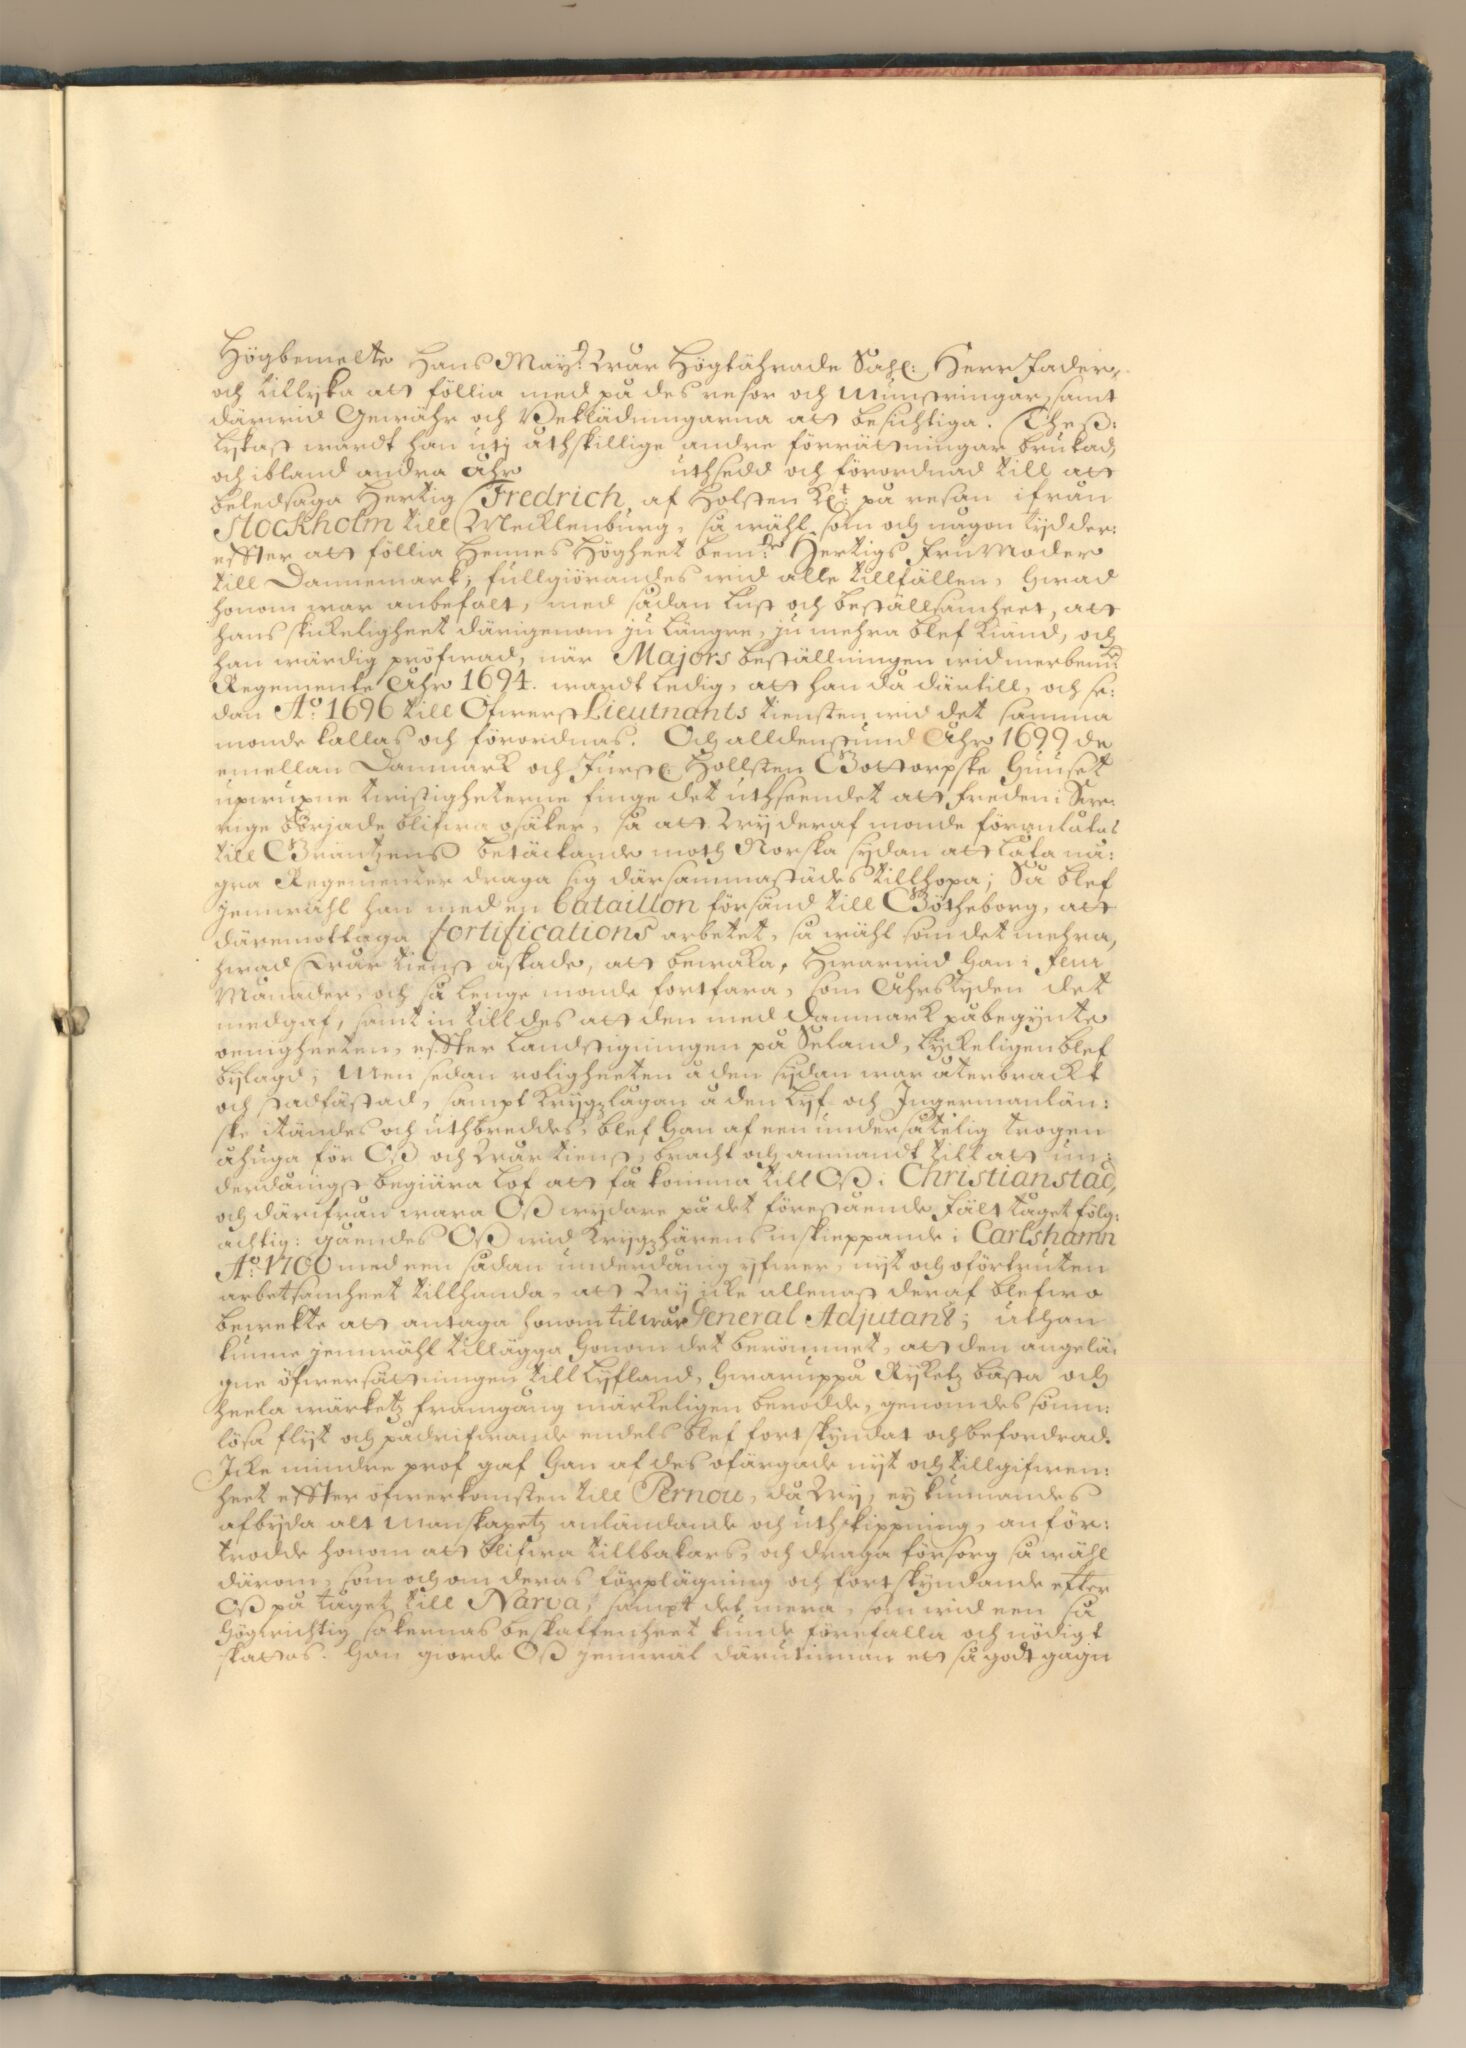 Högbemelte Hans Maÿ:t Wår Högtährade Sahl: Herr Fader,
och tillijka att föllia med på des resor och Munstringar, samt
därwid Gewähr och Beklädningarna att besichtiga. Theß:
lijkast wardt han utj åthskillige andre förrättningar brukad,
och ibland andra Åhr uthsedd och förordnad till att
beledsaga Hertig Fredrich af Holsten K:t på resan ifrån
Stockholm till Mecklenburg, så wähl som och någon tijd der:
effter att föllia Hennes Högheet bem:te Hertigs Fru Moder
till Dannemark, fullgiörandes wid alle tillfällen, hwad
honom war anbefalt, med sådan lust och beställsamheet, att
hans skickeligheet därigenom ju längre, ju mehra blef kiänd, och
han wärdig pröfwad, när Majors beställningen wid merbem:te
Regemente Åhr 1694. wardt ledig, att han då därtill, och se:
dan A:o 1696 till Öfwerst Lieutnants tiensten wid det samma
monde kallas och förordnas. Och alldenstund Åhr 1699 de
emellan Danmark och Fürstl: Hollsten Gottorpske Huuset
upwuxne twistigheterne finge det uthseendet att freden i Swe:
rige började blifwa osäker, så att Wij deraf monde föranlåtas
till Gräntzens betäckande moth Norska sydan att låta nå:
gra Regementer draga sig därsammastädes tillhopa; Så blef
jemwähl han med en bataillon försänd till Götheborg, att
däremottaga fortifications arbetet, så wähl som det mehra,
hwad Wår tienst äskade, att bewaka, Hwarwid han i fem
Månader, och så lenge monde fortfara, som Åhrstijden det
medgaf, samt in till des att den med Danmark påbegynte
oenigheeten, effter Landstigningen på Seland, lyckeligen blef
bijlagd; Men sedan roligheeten å den sijdan war återbrackt
och stadfästad, sampt krijgzlågan å den Lijf- och Ingermanlän:
ske itändes och uthbreddes, blef han af een undersåtelig trogen
åhuga för Oß och Wår tienst, bracht och anmandt till att un:
derdånigst begiära lof att få komma till Oß i Christianstad,
och därifrån wara Oß wijdare på det förestående Fält tåget fölg:
achtig: gåendes Oß wid krijgzhärens inskieppande i Carlshamn
A:o 1700 med een sådan underdånig ijfwer, nijt och oförtruten
arbetsamheet tillhanda, att Wij icke allenast deraf blefwo
bewekte att antaga honom til wår General Adjutant; uthan
kunne jemwähl tillägga honom det berömmet, att den angelä:
gne öfwersättningen till Lijfland, hwaruppå Rijketz bästa och
heela wärketz framgång märckeligen berodde, genom des söm:
lösa flijt och pådrifwande endels blef fortskyndat och befordrad.
Icke mindre prof gaf han af des ofärgade nijt och tillgifwen:
heet effter öfwerkomsten till Pernou, då Wij, ey kunnandes
afbijda alt Manskapetz anländande och uthskippning, anför:
trodde honom att blifwa tillbakars, och draga försorg så wähl
därom, som och om deras förplägning och fortskyndande efter
Oß på tåget till Narva, sampt det mera, som wid een så
högwichtig sakernas beskaffenheet kunde förefalla och nödigt
skattas. Han giorde Oß jemwäl därutinnan ett så godt gagn